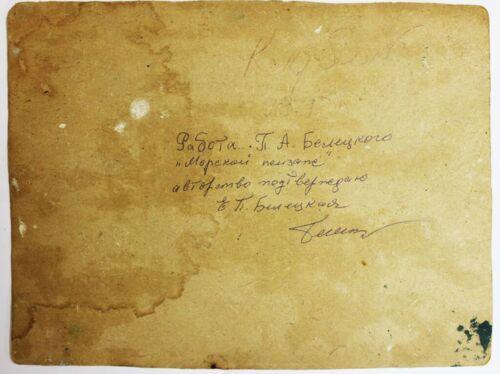 Работа П. А. Белецкого
„Морской пейзаж"
авторство подтверждаю
Е. П. Белецкая